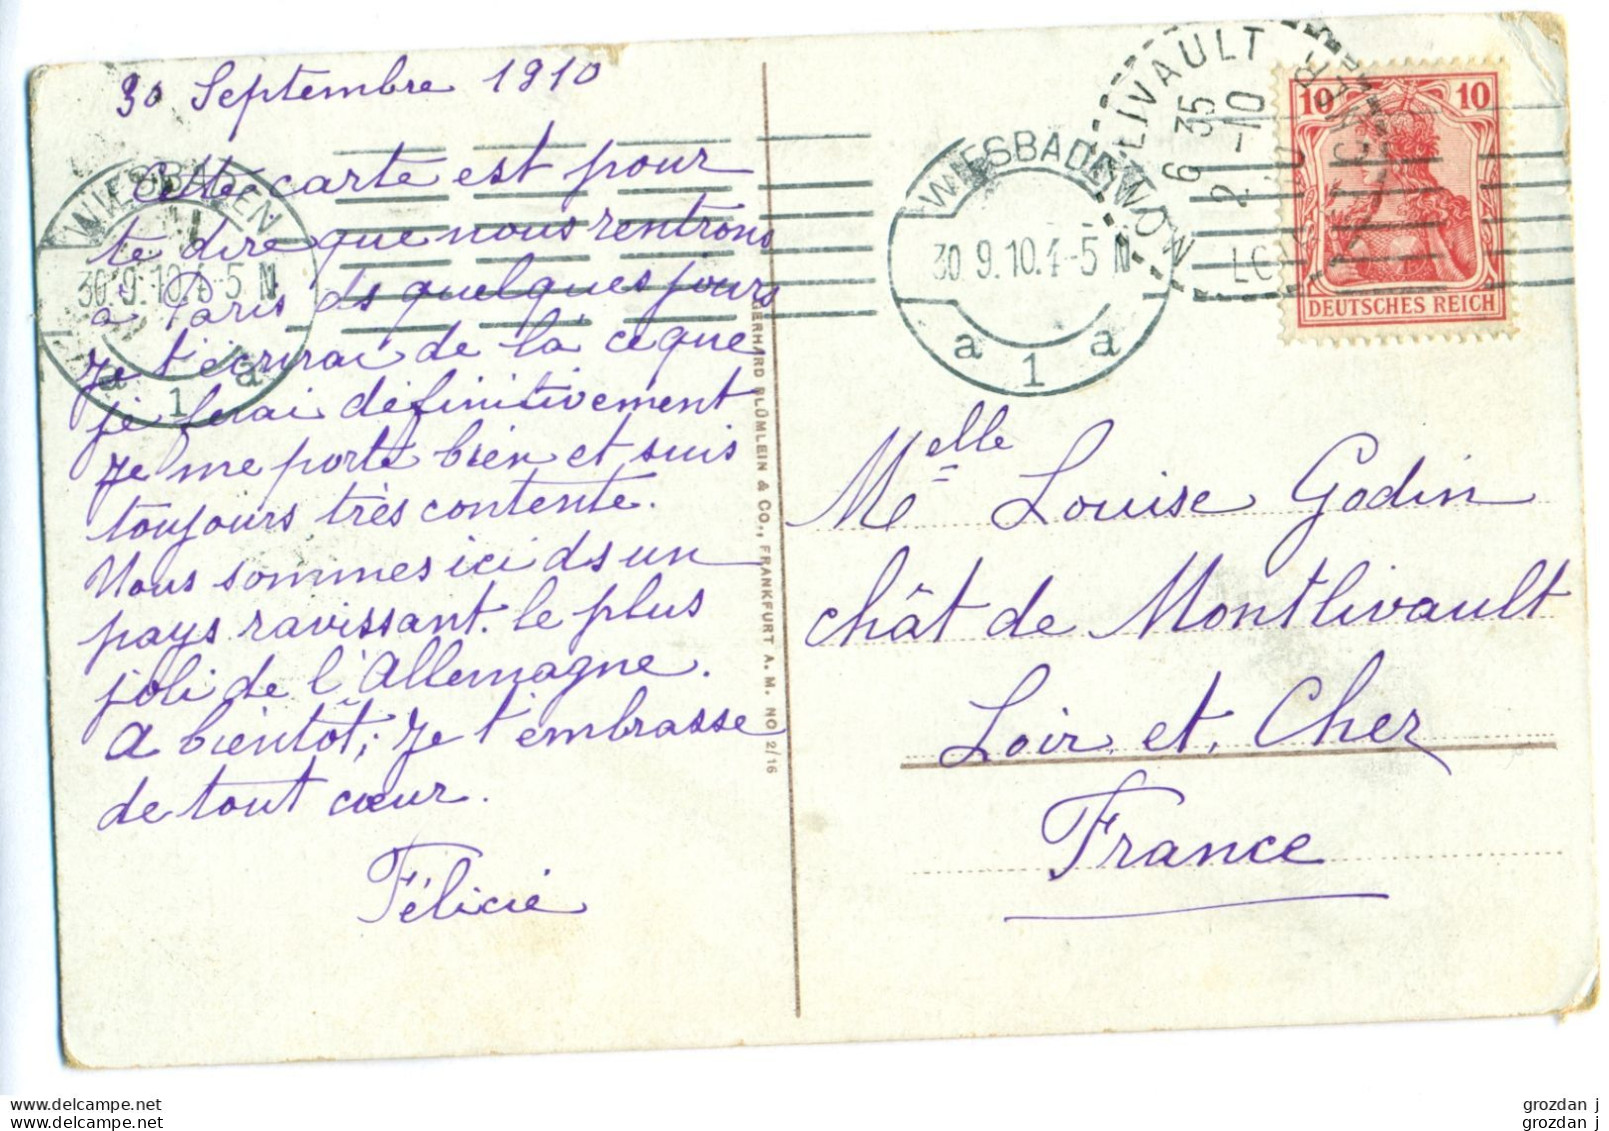 30 Septembre 1910
Cette carte est pour
te dire que nous rentrons
à Paris ds quelques jours
je t'écrirai de là ce que
je ferai définitivement
Je me porte bien et suis
toujours très contente.
Nous sommes ici ds un
pays ravissant. le plus
joli de l'Allemagne.
A bientôt; Je t'embrasse
de tout cœur.
Félicie
WIESBADEN
30.9.10.4-5 N
a 1 a
GERHARD BLÜMLEIN & CO., FRANKFURT A. M. NO 2/16
WIESBADEN
30.9.10.4-5 N
a 1 a
MONTLIVAULT
6 35
2 -10
10 10
DEUTSCHES REICH
Melle Louise Godin
chât de Montlivault
Loir et Cher
France
www.delcampe.net
www.delcampe.net
grozdan j
grozdan j